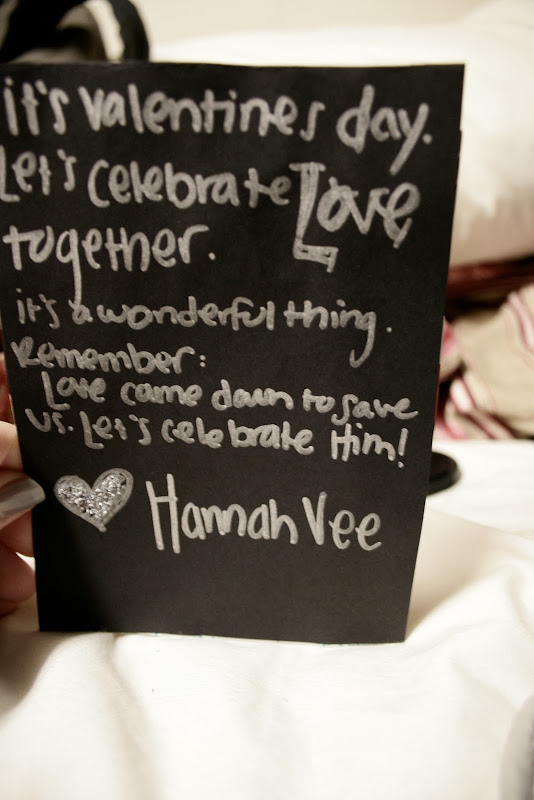 it's valentines day.
Let's celebrate Love
together.
it's a wonderful thing.
Remember:
Love came down to save
us. Let's celebrate Him!
Hannah Vee